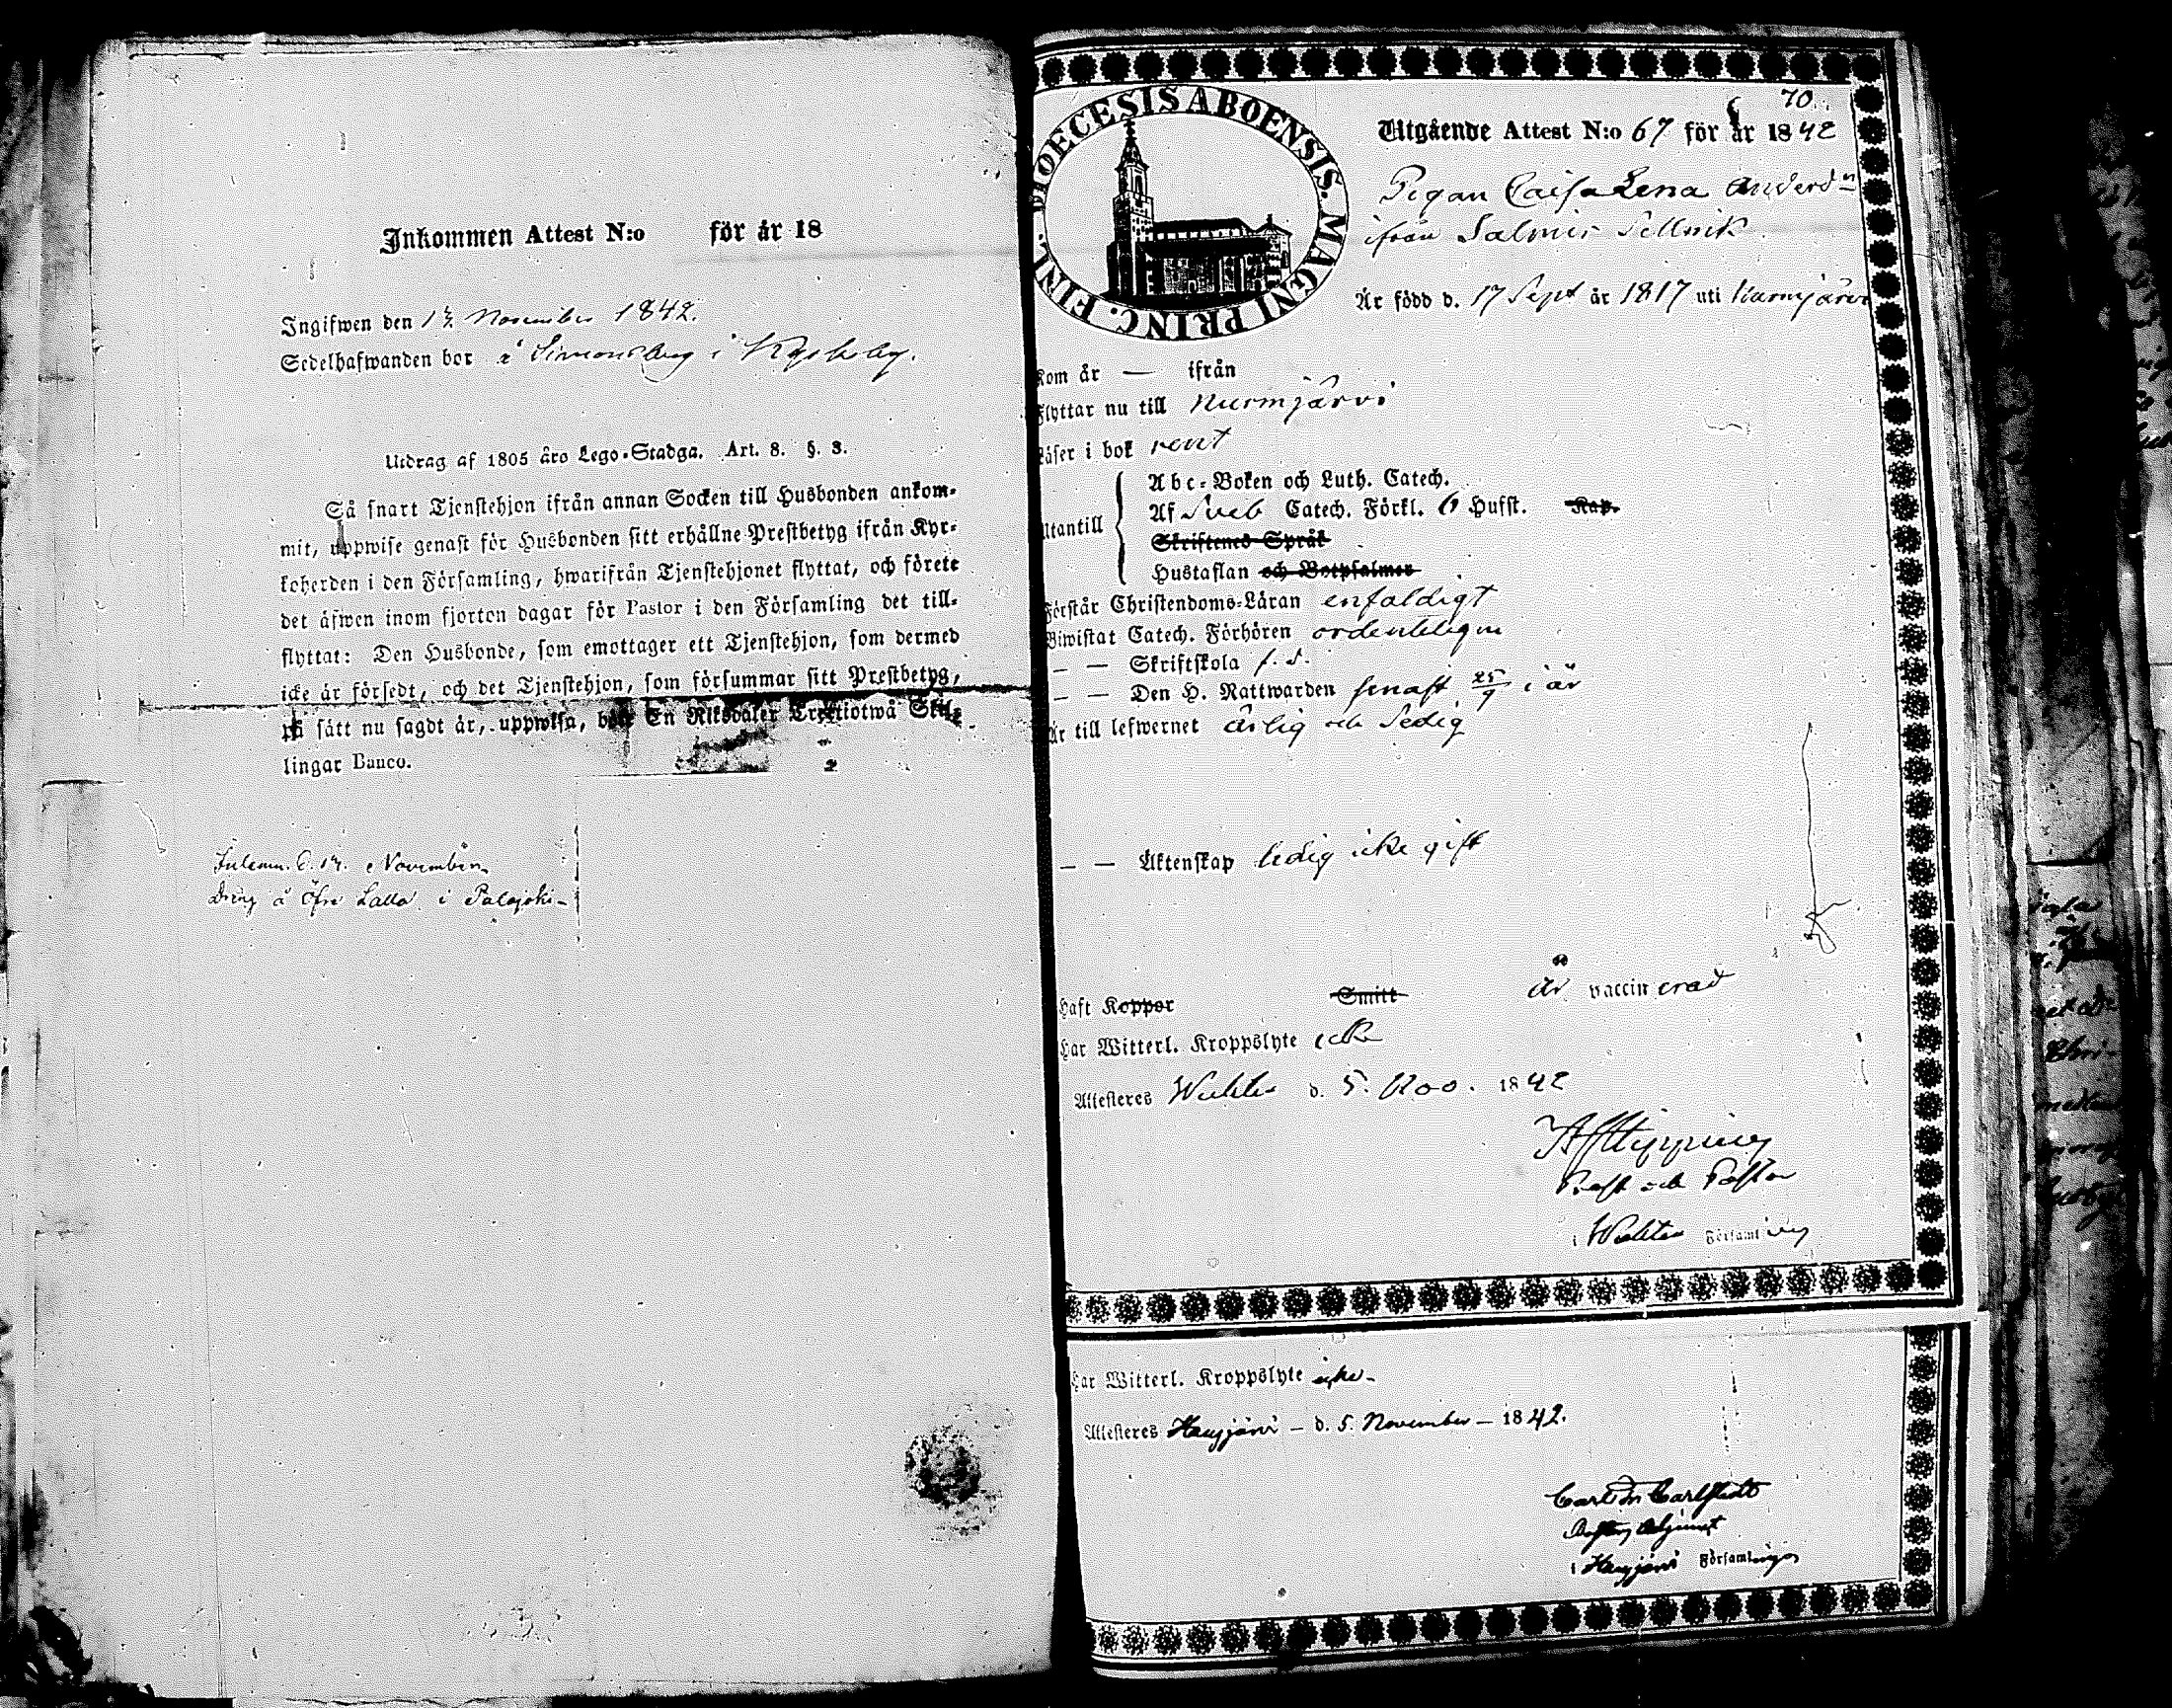 Inkommen Attest N:o för år 18
Ingifwen den 13/4 November 1842.
Sedelhafwanden bor å Simonsberg i
Utdrag af 1805 års Lego-Stadga. Art. 8. §. 3.
Så snart Tjenstehjon ifrån annan Socken till Husbonden ankom-
mit, uppwise genast för Husbonden sitt erhållne Prestbetyg ifrån Kyr-
koherden i den Församling, hwarifrån Tjenstehjonet flyttat, och förete
det äfwen inom fjorton dagar för Pastor i den Församling det till-
flyttat: Den Husbonde, som emottager ett Tjenstehjon, som dermed
icke är försedt, och det Tjenstehjon, som försummar sitt Prestbetyg,
på sätt nu sagdt är, uppwisa, böte En Riksdaler Trettiotwå Skil-
lingar Banco.
Inlemn. d. 14. November
Dräng å Öfre Lalla i Palojoki
70.
DIOECESIS ABOENSIS. MAGNI PRINC. FINL.
Utgående Attest N:o 67 för år 1842
Pigan Caisa Lena Andersd:r
ifrån Salmis
Är född d. 17 Sept år 1817 uti
Kom år — ifrån
Flyttar nu till Nurmjärvi
Läser i bok rent
Abc-Boken och Luth. Catech.
Utantill Af Sveb Catech. Förkl. 6 Hufst. Kap.
Skriftenes Språk
Hustaflan och Botpsalmer
Förstår Christendoms-Läran enfaldigt
Biwistat Catech. Förhören ordenteligen
— — Skriftskola f. d.
— — Den H. Nattwarden senast 25/9 i år
Är till lefwernet ärlig och Sedig
— — Äktenskap ledig icke gift
Haft Koppor Smitt Är vaccinerad
Har Witterl. Kroppslyte icke
Attesteres Wichtis d. 5. Nov. 1842
Prost och Pastor
i Wichtis Församling
Har Witterl. Kroppslyte icke
Attesteres Hausjärvi — d. 5. November — 1842.
Carl Carlstedt
Adjunct
i Hausjärvi Församling